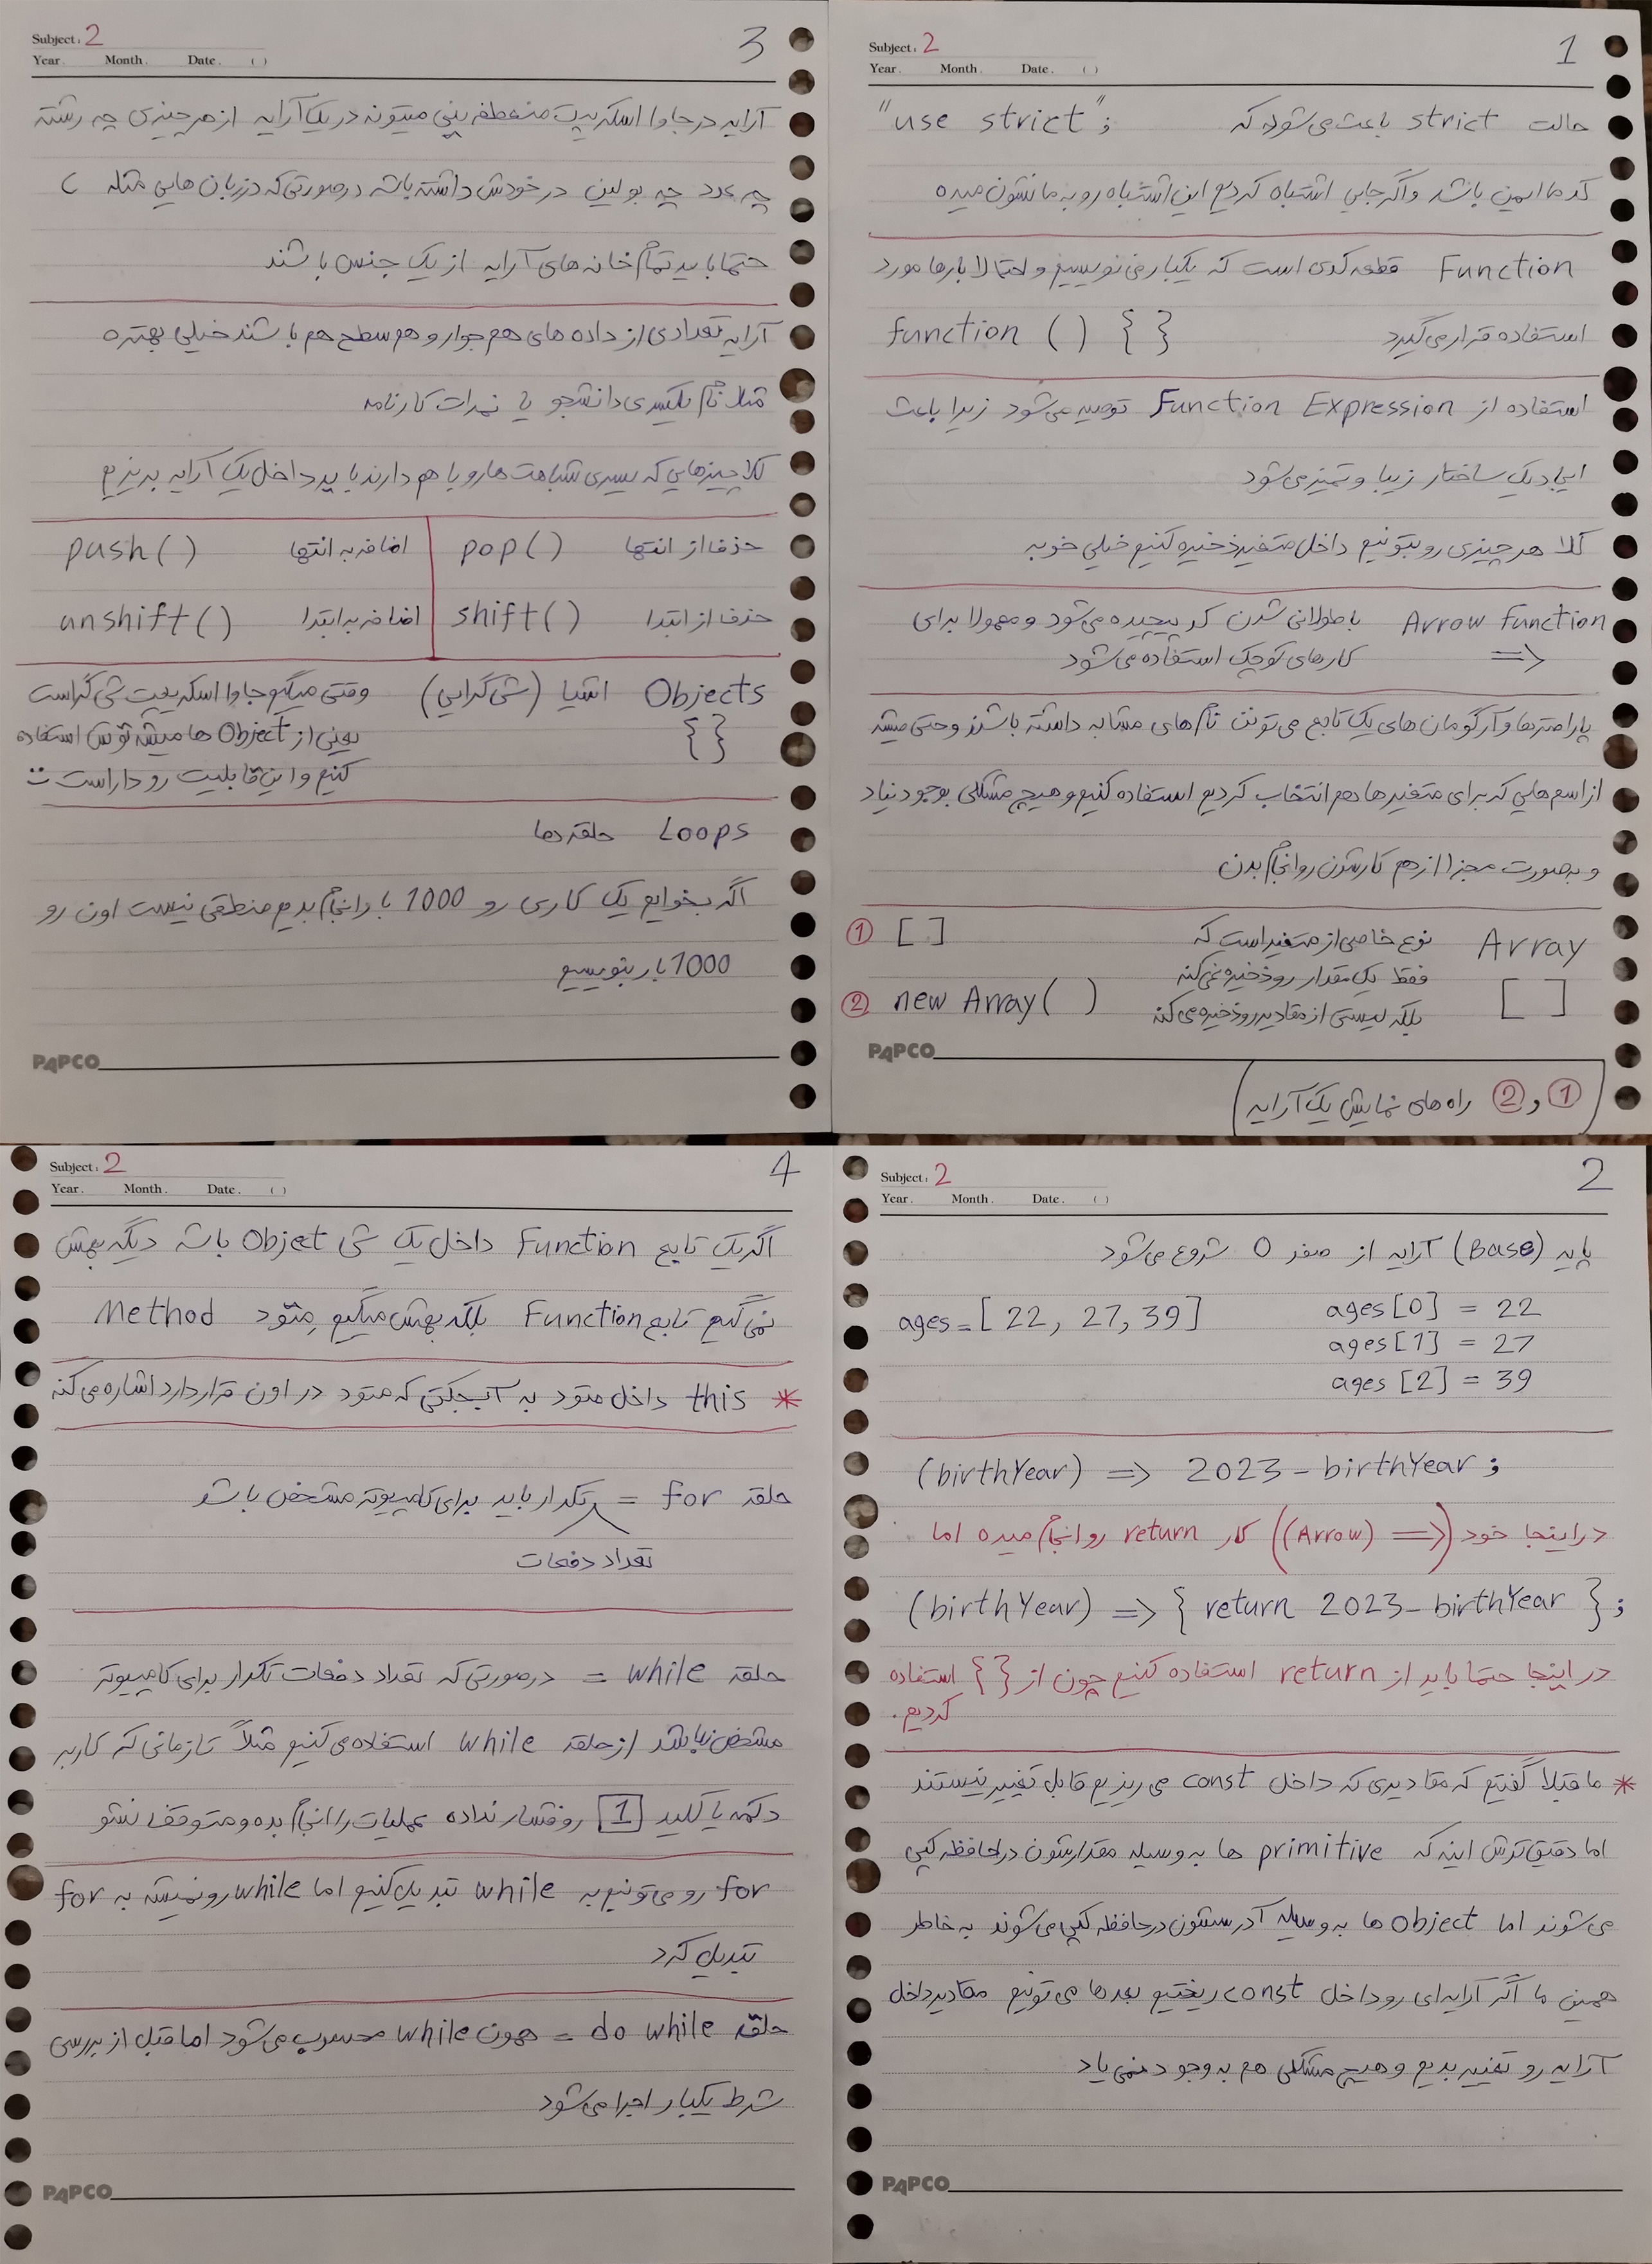 Subject: 2
Year. Month. Date. ( )
1
"use strict"; حالت strict باعث می‌شود که
کد ما ایمن باشد و اگر جایی اشتباه کردیم این اشتباه رو به ما نشون میده
Function قطعه کدی است که یکبار می‌نویسیم و احتمالا بارها مورد
استفاده قرار می‌گیرد function ( ) { }
استفاده از Function Expression توصیه می‌شود زیرا باعث
ایجاد یک ساختار زیبا و تمیز می‌شود
کلا هر چیزی رو بتونیم داخل متغیر ذخیره کنیم خیلی خوبه
Arrow Function با طولانی شدن کد پیچیده می‌شود و معمولا برای
=> کارهای کوچک استفاده می‌شود
پارامترها و آرگومان های یک تابع می‌تونن نام های مشابه داشته باشند و حتی میشه
از اسم هایی که برای متغیرها هم انتخاب کردیم استفاده کنیم و هیچ مشکلی بوجود نیاد
و بصورت مجزا از هم کارشون رو انجام بدن
Array نوع خاصی از متغیر است که ① [ ]
فقط یک مقدار رو ذخیره نمی‌کنه
[ ] بلکه لیستی از مقادیر رو ذخیره می‌کنه ② new Array( )
PAPCO
① و ② راه های نمایش یک آرایه
Subject: 2
Year. Month. Date. ( )
2
پایه (Base) آرایه از صفر 0 شروع می‌شود
ages = [ 22, 27, 39] ages[0] = 22
ages[1] = 27
ages [2] = 39
(birthYear) => 2023 - birthYear ;
در اینجا خود (=> (Arrow)) کار return رو انجام میده اما
(birthYear) => { return 2023 - birthYear } ;
در اینجا حتما باید از return استفاده کنیم چون از { } استفاده
کردیم.
* ما قبلا گفتیم که مقادیری که داخل const می ریزیم قابل تغییر نیستند
اما دقیق ترش اینه که primitive ها به وسیله مقدارشون در حافظه کپی
می‌شوند اما object ها به وسیله آدرسشون در حافظه کپی می‌شوند به خاطر
همین ما اگر آرایه‌ای رو داخل const ریختیم بعدها می تونیم مقادیر داخل
آرایه رو تغییر بدیم و هیچ مشکلی هم به وجود نمی یاد
PAPCO
Subject: 2
Year. Month. Date. ( )
3
آرایه در جاوا اسکریپت منعطفه یعنی میتونه در یک آرایه از هر چیزی چه رشته
چه عدد چه بولین در خودش داشته باشه در صورتی که در زبان هایی مثله C
حتما باید تمام خانه های آرایه از یک جنس باشند
آرایه تعدادی از داده های هم جوار و هم سطح هم باشند خیلی بهتره
مثلا نام یکسری دانشجو یا نمرات کارنامه
کلا چیزهایی که یسری شباهت هارو با هم دارند باید داخل یک آرایه بریزیم
حذف از انتها pop( ) اضافه به انتها push( )
حذف از ابتدا shift( ) اضافه به ابتدا unshift( )
Objects اشیا (شی گرایی) وقتی میگیم جاوا اسکریپت شی گراست
{ } یعنی از Object ها میشه توش استفاده
کنیم و این قابلیت رو داراست
Loops حلقه ها
اگر بخوایم یک کاری رو 1000 بار انجام بدیم منطقی نیست اون رو
1000 بار بنویسیم
PAPCO
Subject: 2
Year. Month. Date. ( )
4
اگر یک تابع Function داخل یک شی Objet باشه دیگه بهش
نمی گیم تابع Function بلکه بهش میگیم مِتُود Method
* this داخل متود به آبجکتی که متود در اون قرار دارد اشاره می کنه
حلقه for = تکرار باید برای کامپیوتر مشخص باشد
تعداد دفعات
حلقه while = در صورتی که تعداد دفعات تکرار برای کامپیوتر
مشخص نباشد از حلقه while استفاده می کنیم مثلاً تا زمانی که کاربر
دکمه یا کلید 1 رو فشار نداده عملیات را انجام بده و متوقف نشو
for رو می تونیم به while تبدیل کنیم اما while رو نمیشه به for
تبدیل کرد
حلقه do while = همون while محسوب می شود اما قبل از بررسی
شرط یکبار اجرا می شود
PAPCO